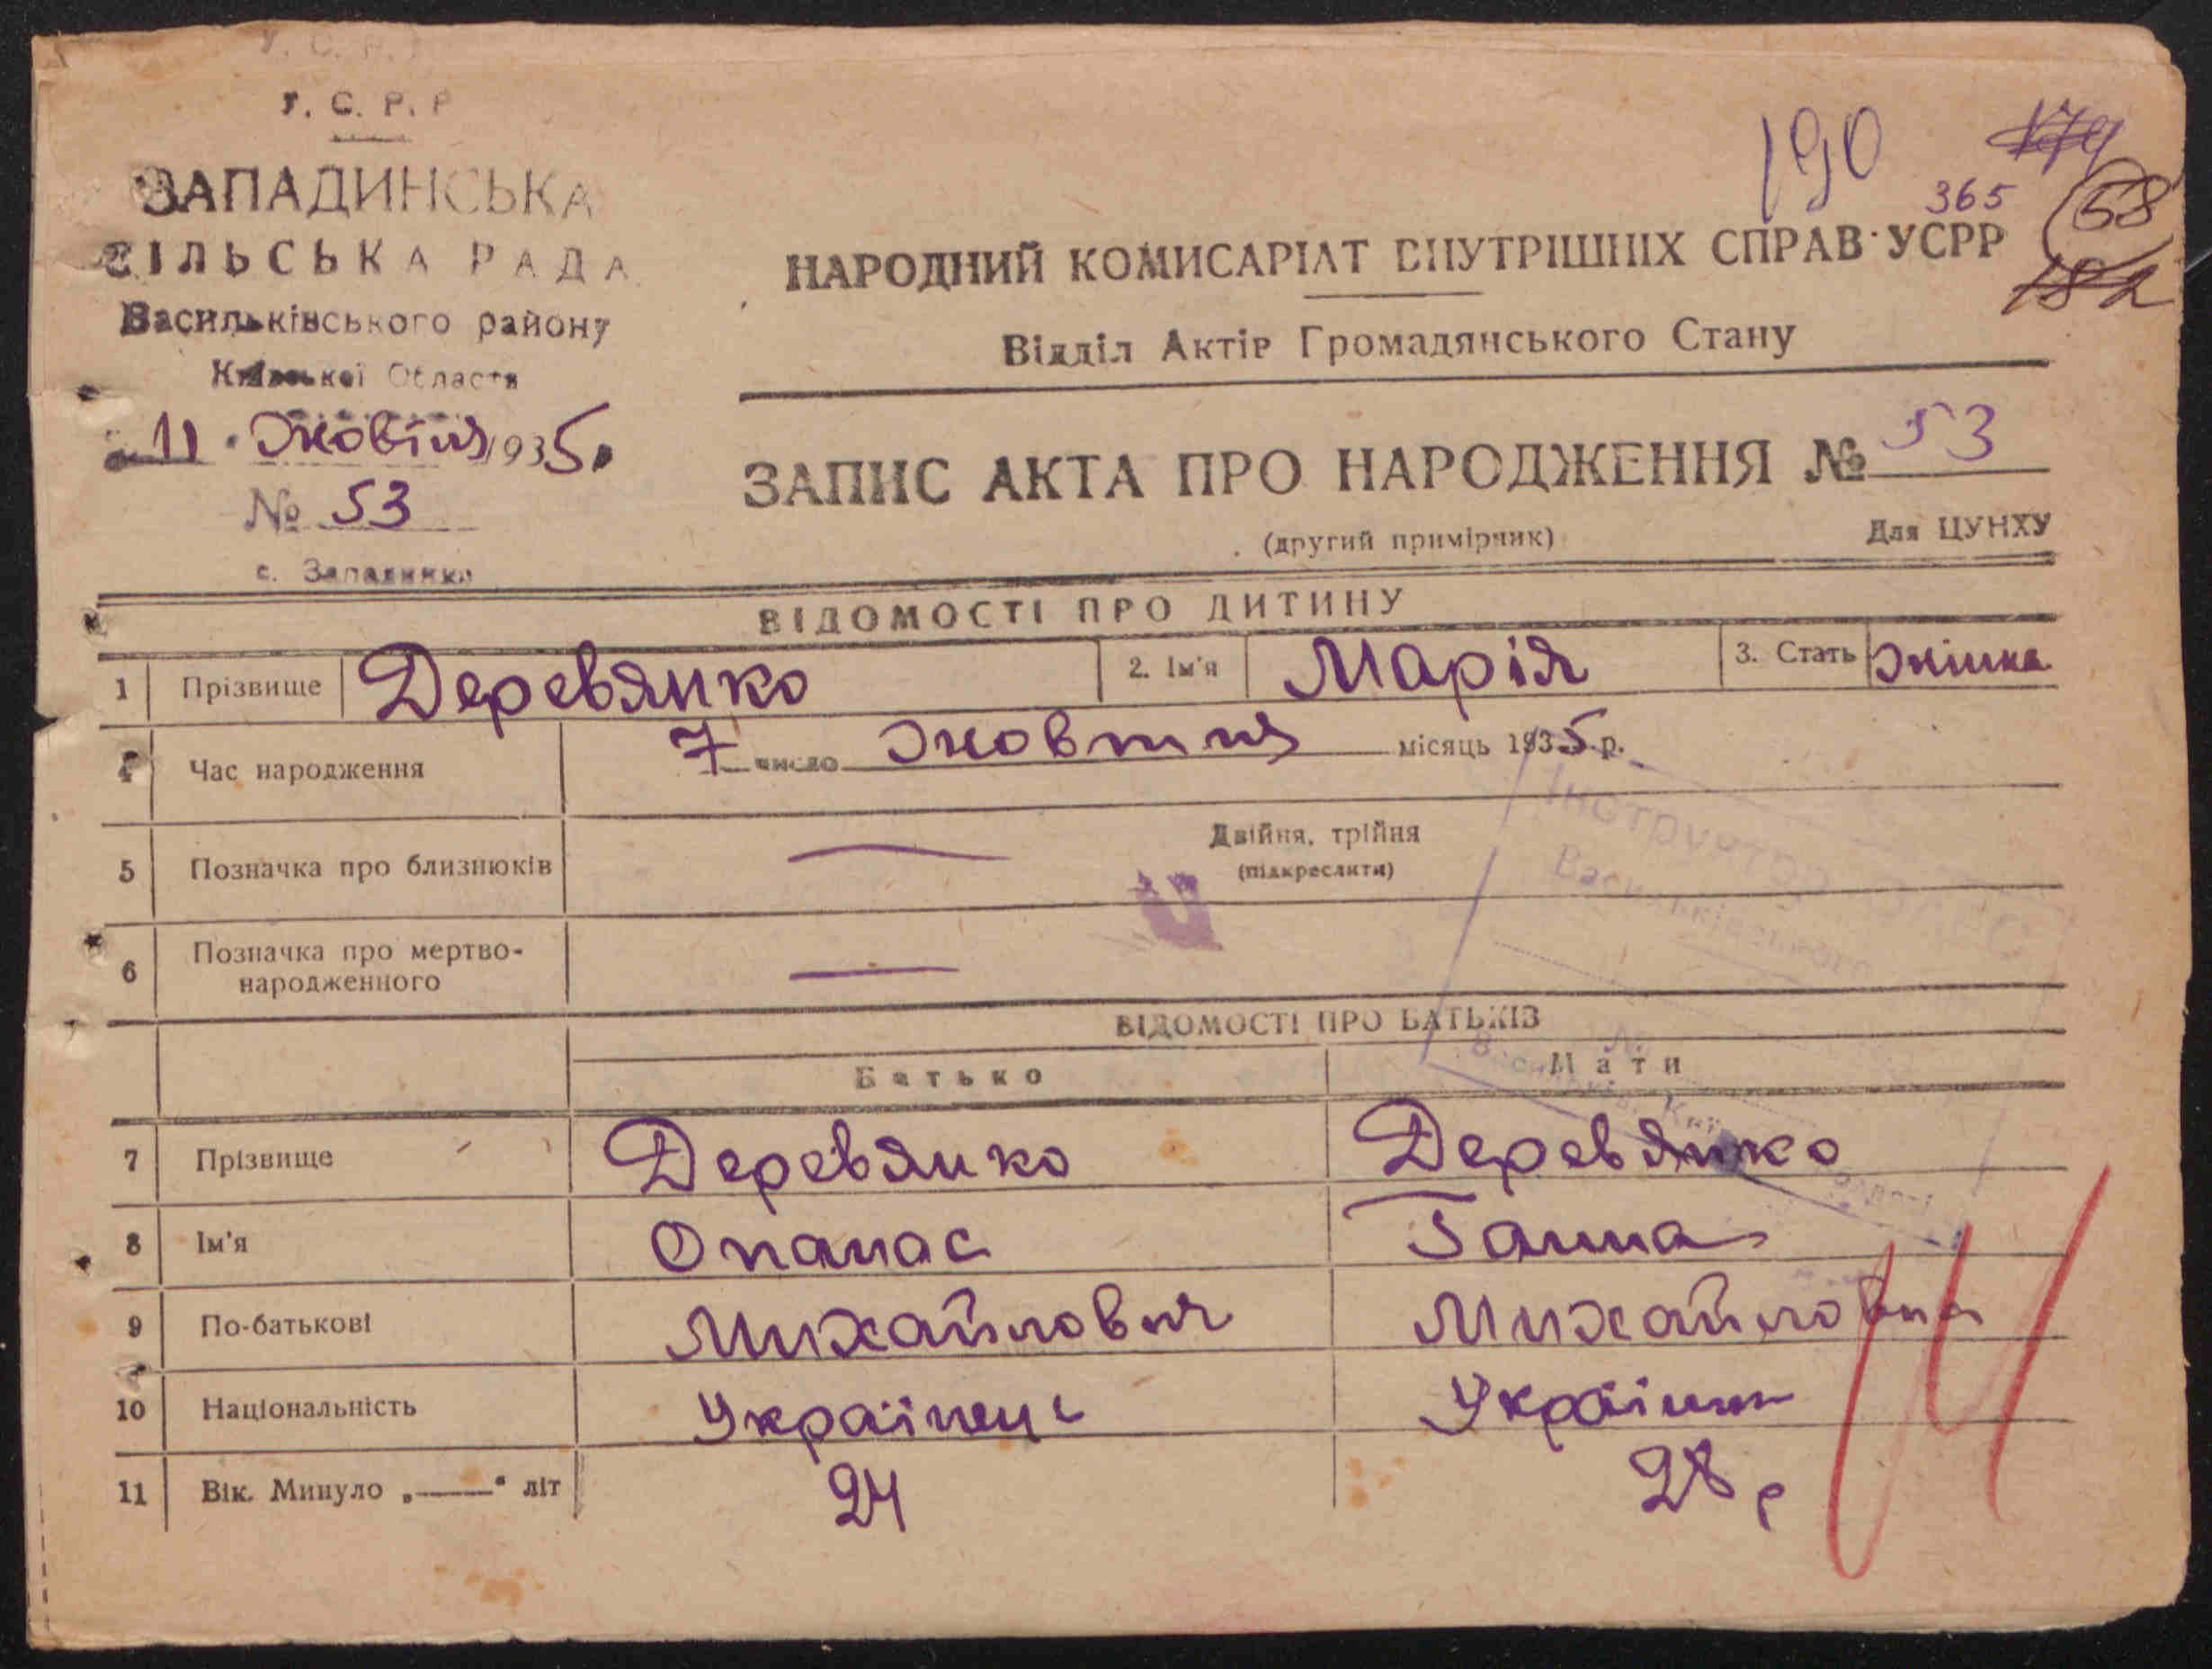 У. С. Р. Р
ЗАПАДИНСЬКА
СІЛЬСЬКА РАДА
Васильківського району
Київської Области
11 Жовтня 1935
№ 53
с. Западинка
190
174
365
58
182
НАРОДНИЙ КОМИСАРІАТ ВНУТРІШНІХ СПРАВ УСРР
Відділ Актів Громадянського Стану
ЗАПИС АКТА ПРО НАРОДЖЕННЯ № 53
(другий примірник)
Для ЦУНХУ
ВІДОМОСТІ ПРО ДИТИНУ
1 Прізвище Деревянко 2. Ім'я Марія 3. Стать Жінка
4 Час народження 7 число Жовтня місяць 1935 р.
5 Позначка про близнюків Двійня, трійня
(підкреслити)
6 Позначка про мертво-
народженного
Інструктор
Васильківського
ВІДОМОСТІ ПРО БАТЬКІВ
Батько Мати
7 Прізвище Деревянко Деревянко
8 Ім'я Опанас Ганна
9 По-батькові Михайлович Михайловна
10 Національність Українець Українка
11 Вік. Минуло „——“ літ 24 28 р